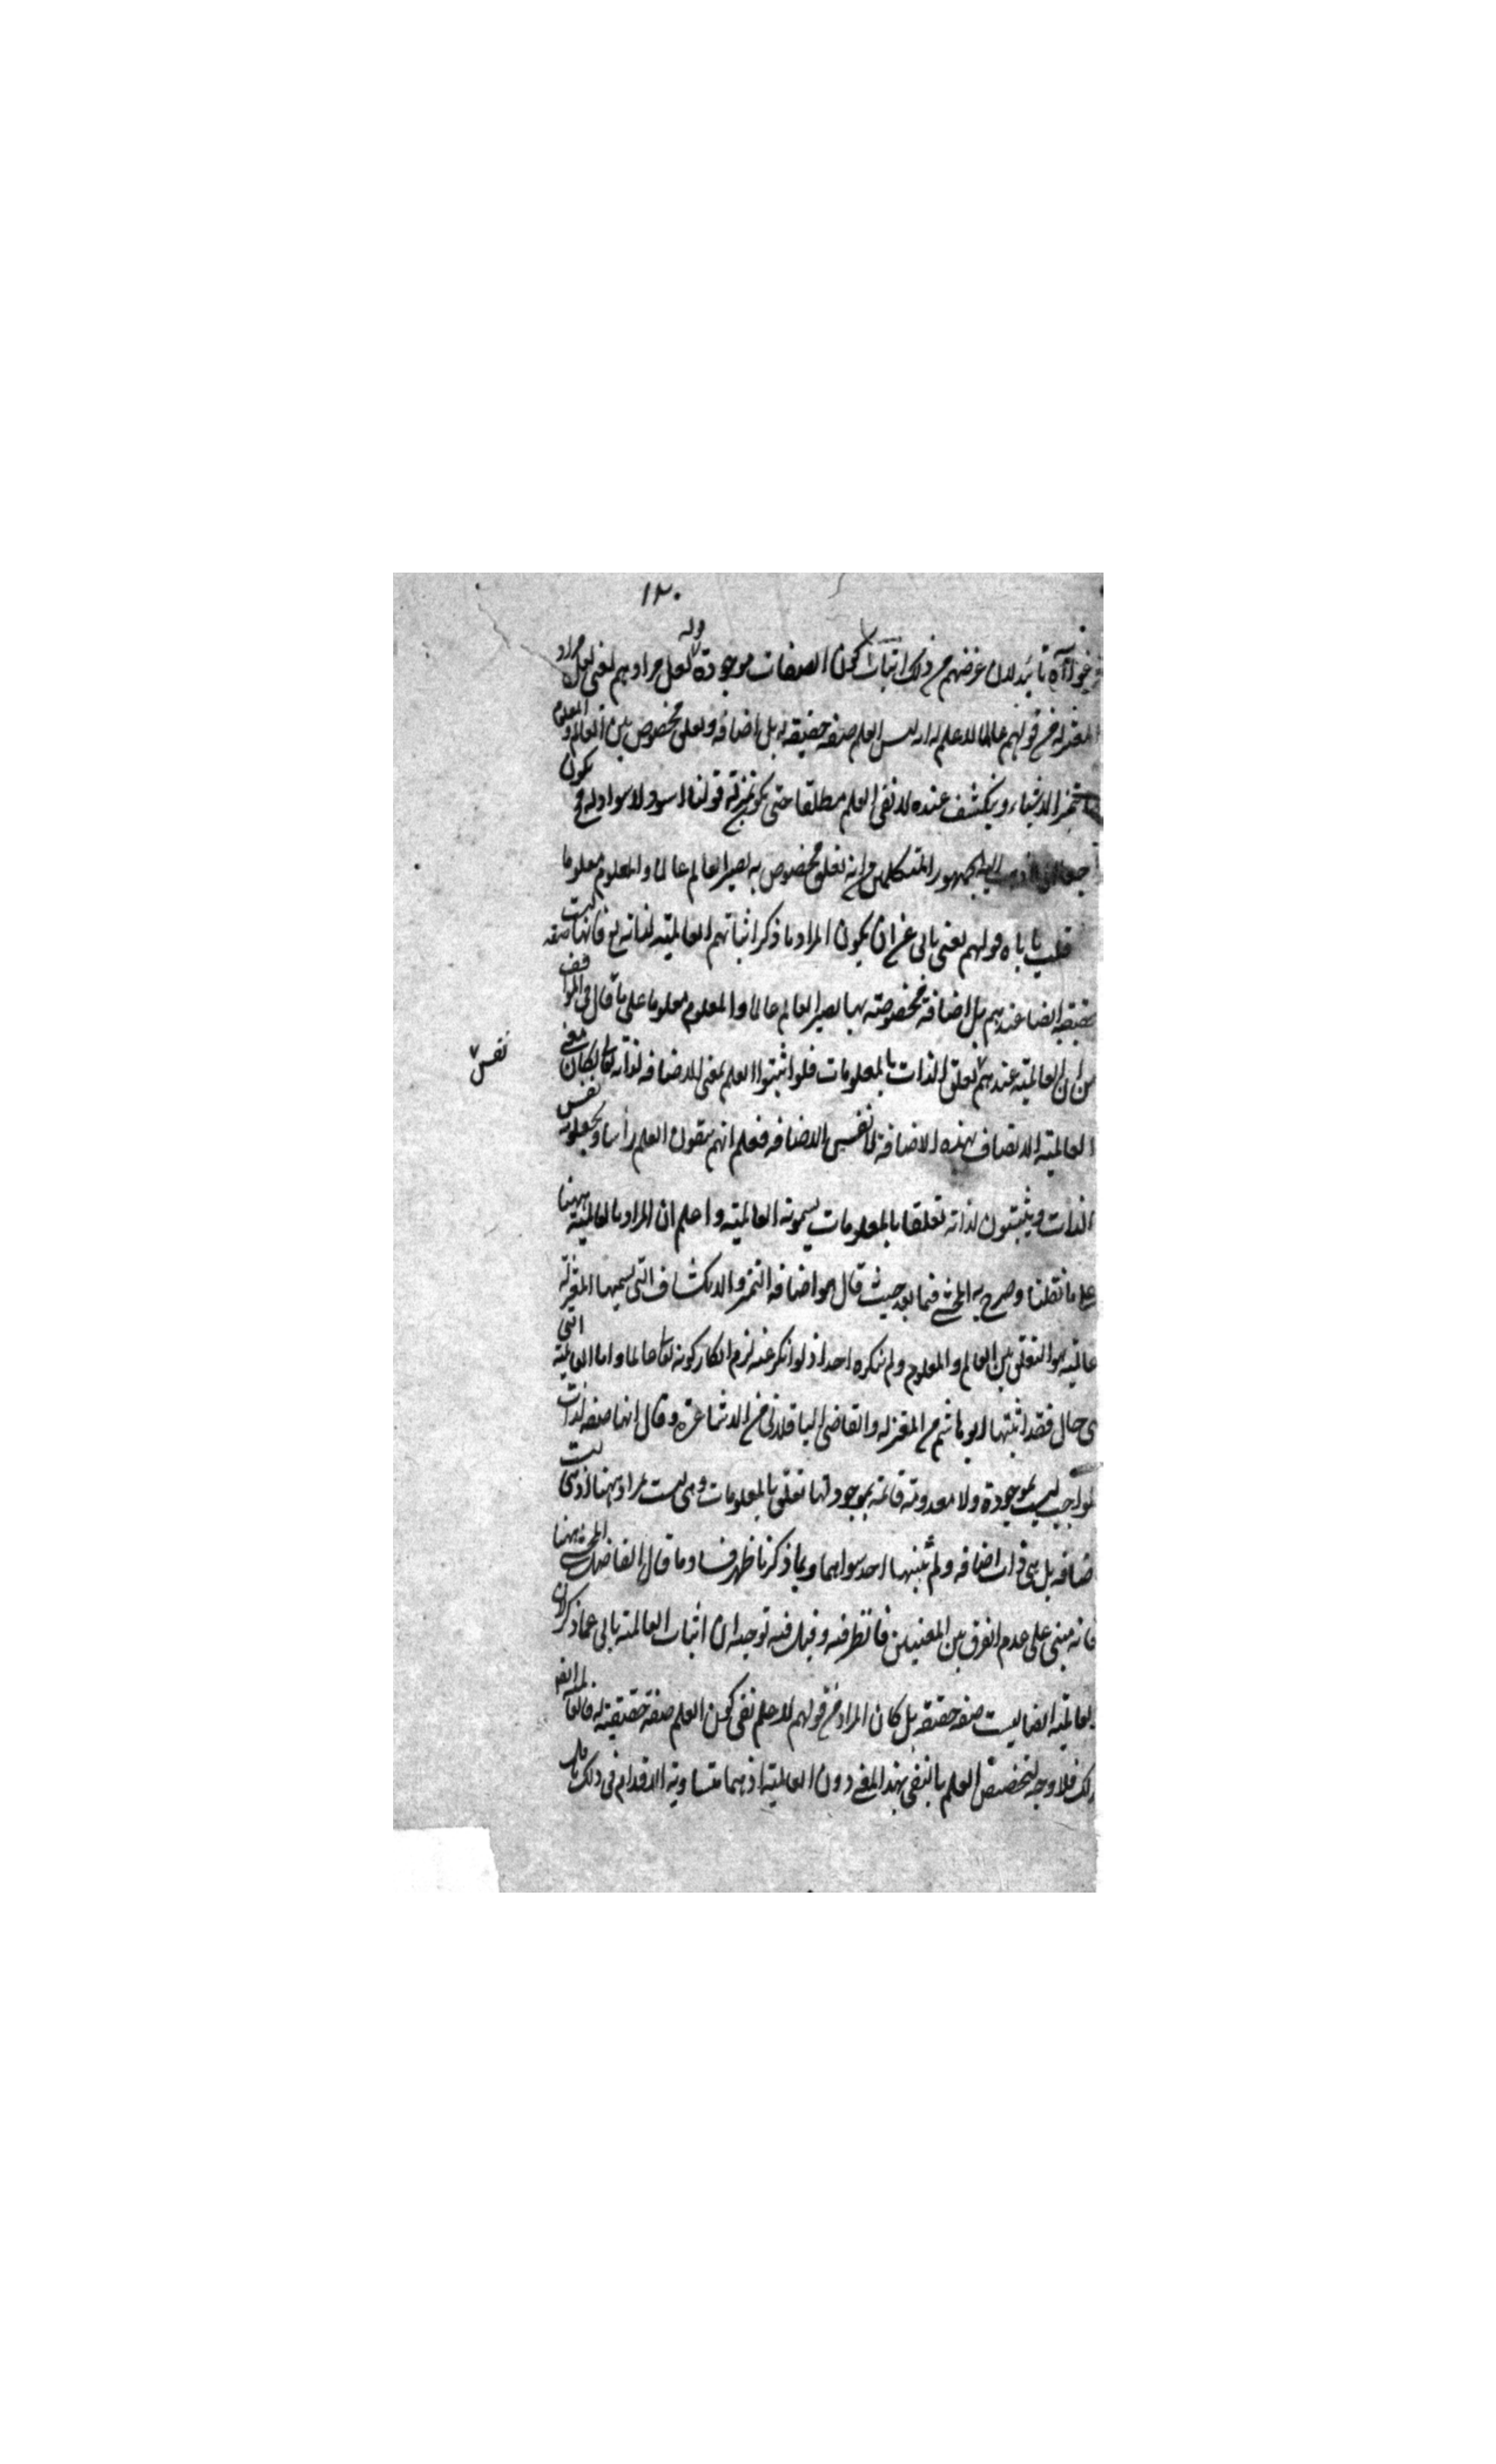 ١٢٠
تأييد لان غرضهم من ذلك اثبات كون الصفات موجودة قوله لعل مرادهم يعنى لعل مراد
المعتزلة من قولهم عالم لا علم له انه ليس العلم صفة حقيقية له بل اضافة وتعلق مخصوص بين العالم والمعلوم
الاشياء وينكشف عنده لا نفى العلم مطلقا حتى يكون بمنزلة قولنا اسود لا سواد له فح يكون
اليه جمهور المتكلمين من انه تعلق مخصوص به يصير العالم عالما والمعلوم معلوما
قلت يأباه قولهم يعنى يأبى عن ان يكون المراد ما ذكر اثباتهم العالمية لذاته تع فانها ليست صفة
حقيقية ايضا عندهم بل اضافة مخصوصة بها يصير العالم عالما والمعلوم معلوما على ما قال فى المواقف
من ان العالمية عندهم تعلق الذات بالمعلومات فلو اثبتوا العلم بمعنى الاضافة لذاته تعالى لكان معنى
نفس
العالمية الاتصاف بهذه الاضافة لا نفس الاضافة فعلم انهم ينفون العلم رأسا ويجعلونه نفس
الذات ويثبتون لذاته تعلقا بالمعلومات يسمونه العالمية واعلم ان المراد بالعالمية ههنا
على ما نقلنا وصرح به المحشى فيما بعد حيث قال هو اضافة التميز والانكشاف التى يسميها المعتزلة
عالمية هو التعلق بين العالم والمعلوم ولم ينكره احد اذ لو انكر عنه لزم انكار كونه تعالى عالما واما العالمية التى
هى حال فقد اثبتها ابو هاشم من المعتزلة والقاضى الباقلانى من الاشاعرة وقال انها صفة لذات
الواجب ليست بموجودة ولا معدومة قائمة بموجود لها تعلق بالمعلومات وهى ليست مراد ههنا اذ هى ليست
اضافة بل هى ذات اضافة ولم يثبتها احد سواهما وبما ذكرنا ظهر فساد ما قال الفاضل المحشى ههنا
فانه مبنى على عدم الفرق بين المعنيين فانظر فيه وقيل فيه توجيه ان اثبات العالمية يأبى عما ذكر لان
العالمية ايضا ليست صفة حقيقية بل كان المراد من قولهم لا علم نفى كون العلم صفة حقيقية له فالعالمية ايضا
كذلك فلا وجه لتخصيص العلم بالنفى بهذا المعنى دون العالمية اذ هما متساوية الاقدام فى ذلك